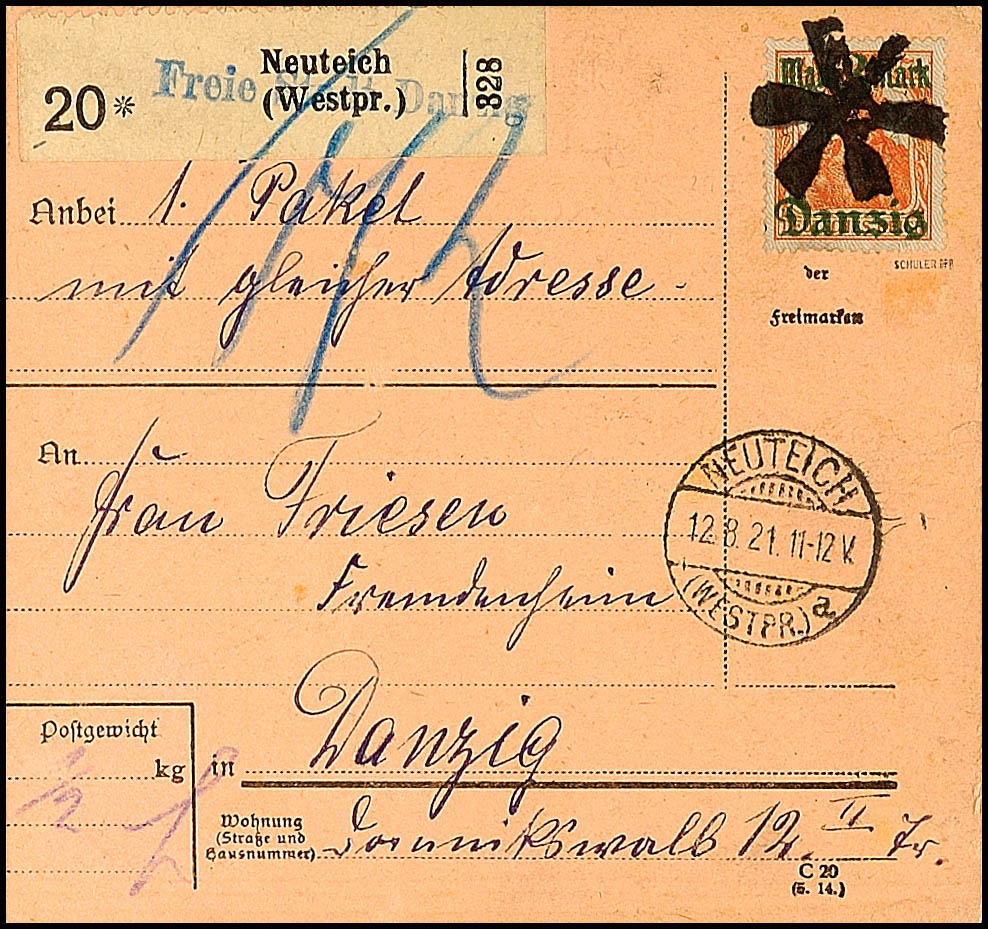 Neuteich
(Westpr.)
20*
328
Freie Stadt Danzig
Mark 2 Mark
Danzig
SCHÜLER BPP
der
Freimarken
Anbei 1. Paket
mit gleicher Adresse.
An
Frau Friesen
Fremdenheim
NEUTEICH
12.8.21. 11-12 V.
(WESTPR.) a
Postgewicht
kg
1/2
in Danzig
Wohnung
(Straße und
Hausnummer)
Dominikswall 12. II Tr.
C 20
(5. 14.)